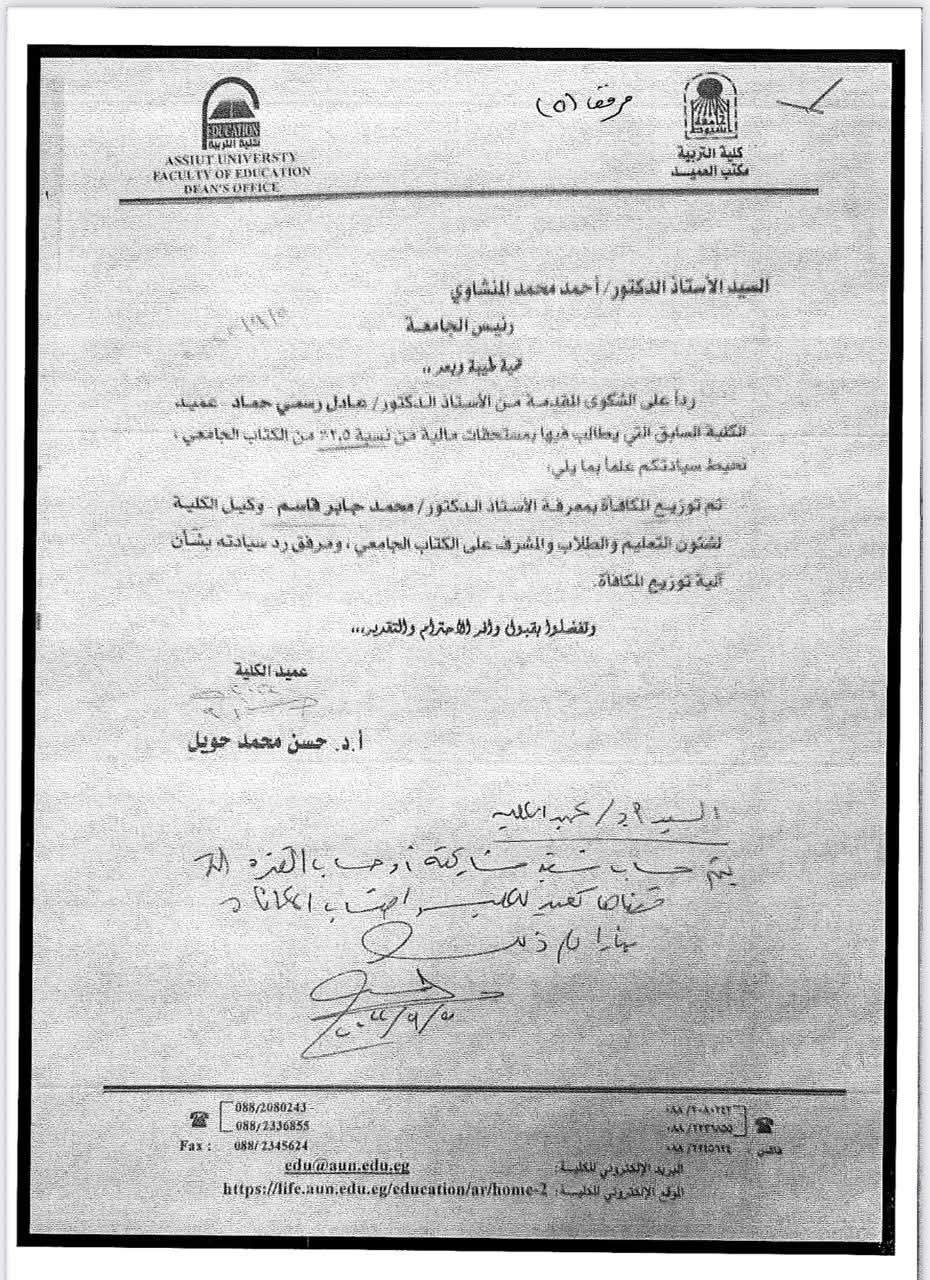 مرفق (٥)
EDUCATION
كلية التربية
ASSIUT UNIVERSTY
FACULTY OF EDUCATION
DEAN'S OFFICE
كلية التربية
مكتب العميــد
السيد الأستاذ الدكتور/ أحمد محمد المنشاوي
رئيس الجامعـة
تحية طيبة وبعد ،،
رداً على الشكوى المقدمة من الأستاذ الدكتور/ عادل رسمي حماد - عميد
الكلية السابق التي يطالب فيها بمستحقات مالية من نسبة ٢,٥٪ من الكتاب الجامعي ،
نحيط سيادتكم علماً بما يلي:
تم توزيع المكافأة بمعرفة الأستاذ الدكتور/ محمد جابر قاسم - وكيل الكلية
لشئون التعليم والطلاب والمشرف على الكتاب الجامعي ، ومرفق رد سيادته بشأن
آلية توزيع المكافأة.
وتفضلوا بقبول وافر الاحترام والتقدير،،،
عميد الكلية
أ.د. حسن محمد حويل
السيد أ.د/ عميد الكلية
يتم حساب نسبة مشاركته أو حساب الفترة التى
قضاها كعميد للكلية
088/2080243 -
088/2336855
Fax : 088/2345624
٠٨٨ /٢٠٨٠٢٤٣
٠٨٨ /٢٣٣٦٨٥٥
فاكس : ٠٨٨ /٢٣٤٥٦٢٤
البريد الإلكتروني للكليـة: edu@aun.edu.eg
الموقع الإلكتروني للكليـة: https://life.aun.edu.eg/education/ar/home-2